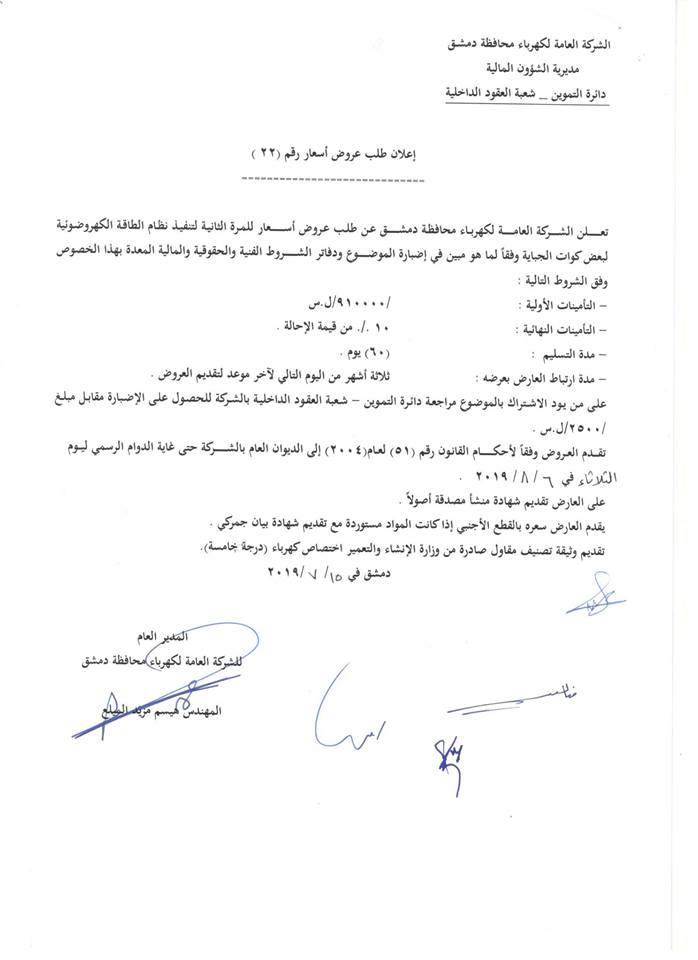 الشركة العامة لكهرباء محافظة دمشق
مديرية الشؤون المالية
دائرة التموين _ شعبة العقود الداخلية
إعلان طلب عروض أسعار رقم (٢٢ )
تعلن الشركة العامة لكهرباء محافظة دمشق عن طلب عروض أسعار للمرة الثانية لتنفيذ نظام الطاقة الكهروضوئية
لبعض كوات الجباية وفقاً لما هو مبين في إضبارة الموضوع ودفاتر الشروط الفنية والحقوقية والمالية المعدة بهذا الخصوص
وفق الشروط التالية :
– التأمينات الأولية : /٩١٠٠٠٠/ل.س
– التأمينات النهائية : ١٠ ./. من قيمة الإحالة .
– مدة التسليم : (٦٠) يوم .
– مدة ارتباط العارض بعرضه : ثلاثة أشهر من اليوم التالي لآخر موعد لتقديم العروض .
على من يود الاشتراك بالموضوع مراجعة دائرة التموين – شعبة العقود الداخلية بالشركة للحصول على الإضبارة مقابل مبلغ
/٢٥٠٠/ل.س .
تقدم العروض وفقاً لأحكام القانون رقم (٥١) لعام(٢٠٠٤) إلى الديوان العام بالشركة حتى غاية الدوام الرسمي ليوم
الثلاثاء في ٦ / ٨ / ٢٠١٩ .
على العارض تقديم شهادة منشأ مصدقة أصولاً .
يقدم العارض سعره بالقطع الأجنبي إذا كانت المواد مستوردة مع تقديم شهادة بيان جمركي .
تقديم وثيقة تصنيف مقاول صادرة من وزارة الإنشاء والتعمير اختصاص كهرباء (درجة خامسة).
دمشق في ١٥ / ٧ /٢٠١٩
المدير العام
للشركة العامة لكهرباء محافظة دمشق
المهندس هيسم مزيد